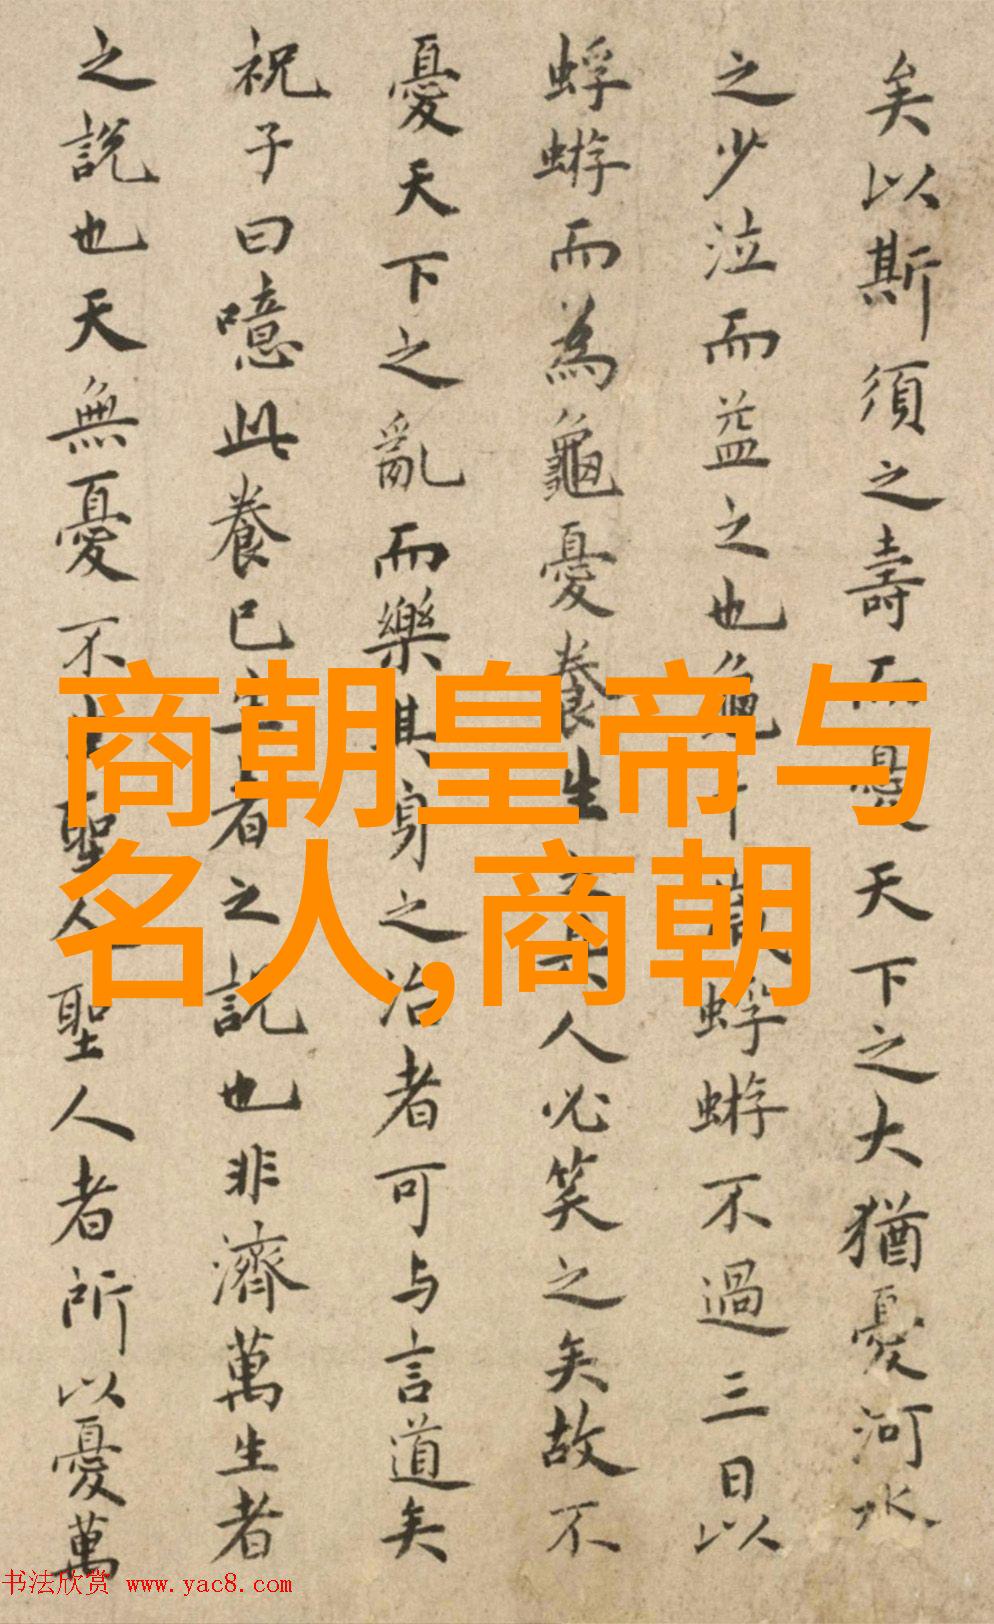 矣以斯須之壽而憂天下之大猶憂河水
之少泣而益之也龜千歲蜉蝣不過三日以
蜉蝣而為龜憂養生之具人必笑之矣故不
憂天下之亂而樂其身之治者可与言道矣
祝子曰噫此養已生者之說也非濟萬生者
之說也天無憂不生聖人聖人者所以憂萬
商朝皇帝与
名人,商朝
书法欣赏 www.yac8.com